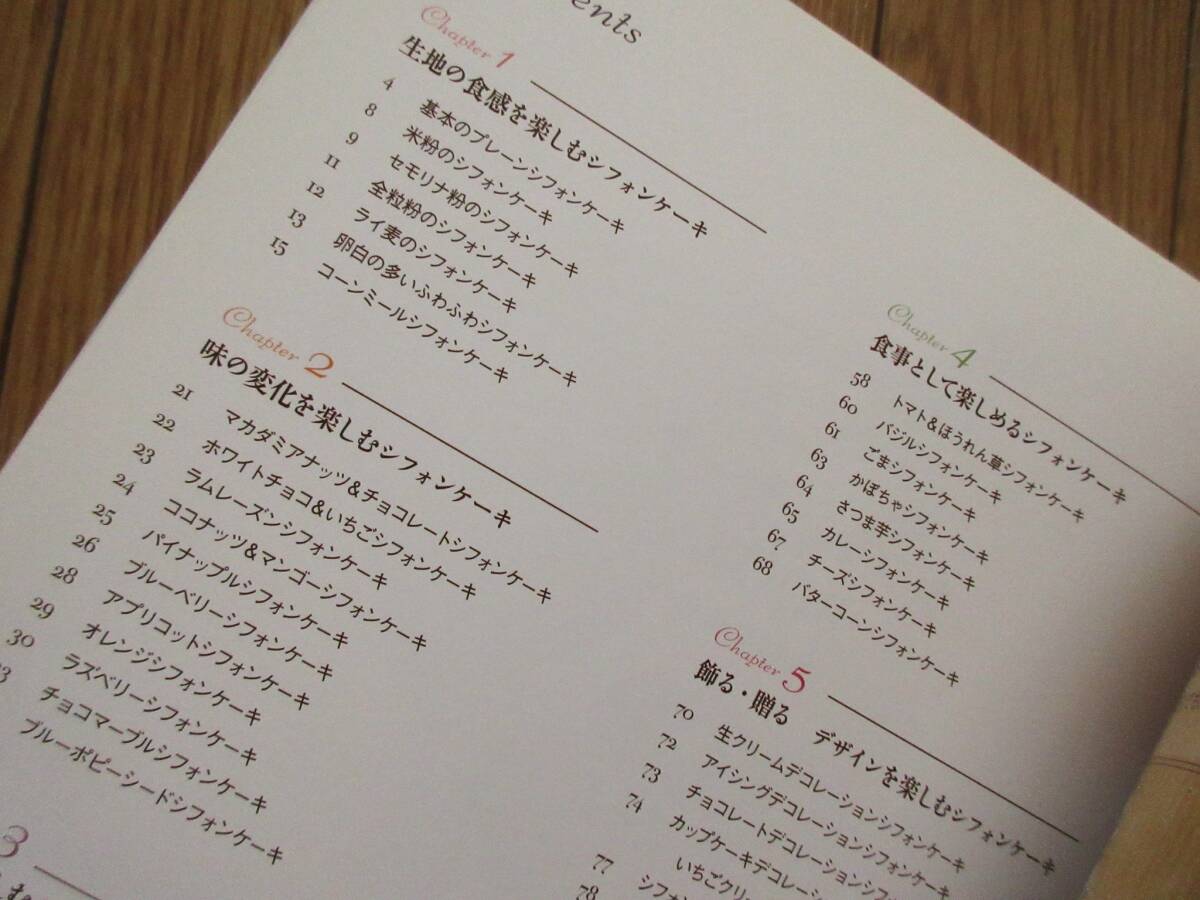 ents
Chapter 1
生地の食感を楽しむシフォンケーキ
4 基本のプレーンシフォンケーキ
8 米粉のシフォンケーキ
9 セモリナ粉のシフォンケーキ
11 全粒粉のシフォンケーキ
12 ライ麦のシフォンケーキ
13 卵白の多いふわふわシフォンケーキ
15 コーンミールシフォンケーキ
Chapter 2
味の変化を楽しむシフォンケーキ
21 マカダミアナッツ&チョコレートシフォンケーキ
22 ホワイトチョコ&いちごシフォンケーキ
23 ラムレーズンシフォンケーキ
24 ココナッツ&マンゴーシフォンケーキ
25 パイナップルシフォンケーキ
26 ブルーベリーシフォンケーキ
28 アプリコットシフォンケーキ
29 オレンジシフォンケーキ
30 ラズベリーシフォンケーキ
3 チョコマーブルシフォンケーキ
ブルーポピーシードシフォンケーキ
3
Chapter 4
食事として楽しめるシフォンケーキ
58 トマト&ほうれん草シフォンケーキ
60 バジルシフォンケーキ
61 ごまシフォンケーキ
63 かぼちゃシフォンケーキ
64 さつま芋シフォンケーキ
65 カレーシフォンケーキ
67 チーズシフォンケーキ
68 バターコーンシフォンケーキ
Chapter 5
飾る・贈る デザインを楽しむシフォンケーキ
70 生クリームデコレーションシフォンケーキ
72 アイシングデコレーションシフォンケーキ
73 チョコレートデコレーションシフォ
74 カップケーキデコレーショ
77 いちごクリ
78 シフォン